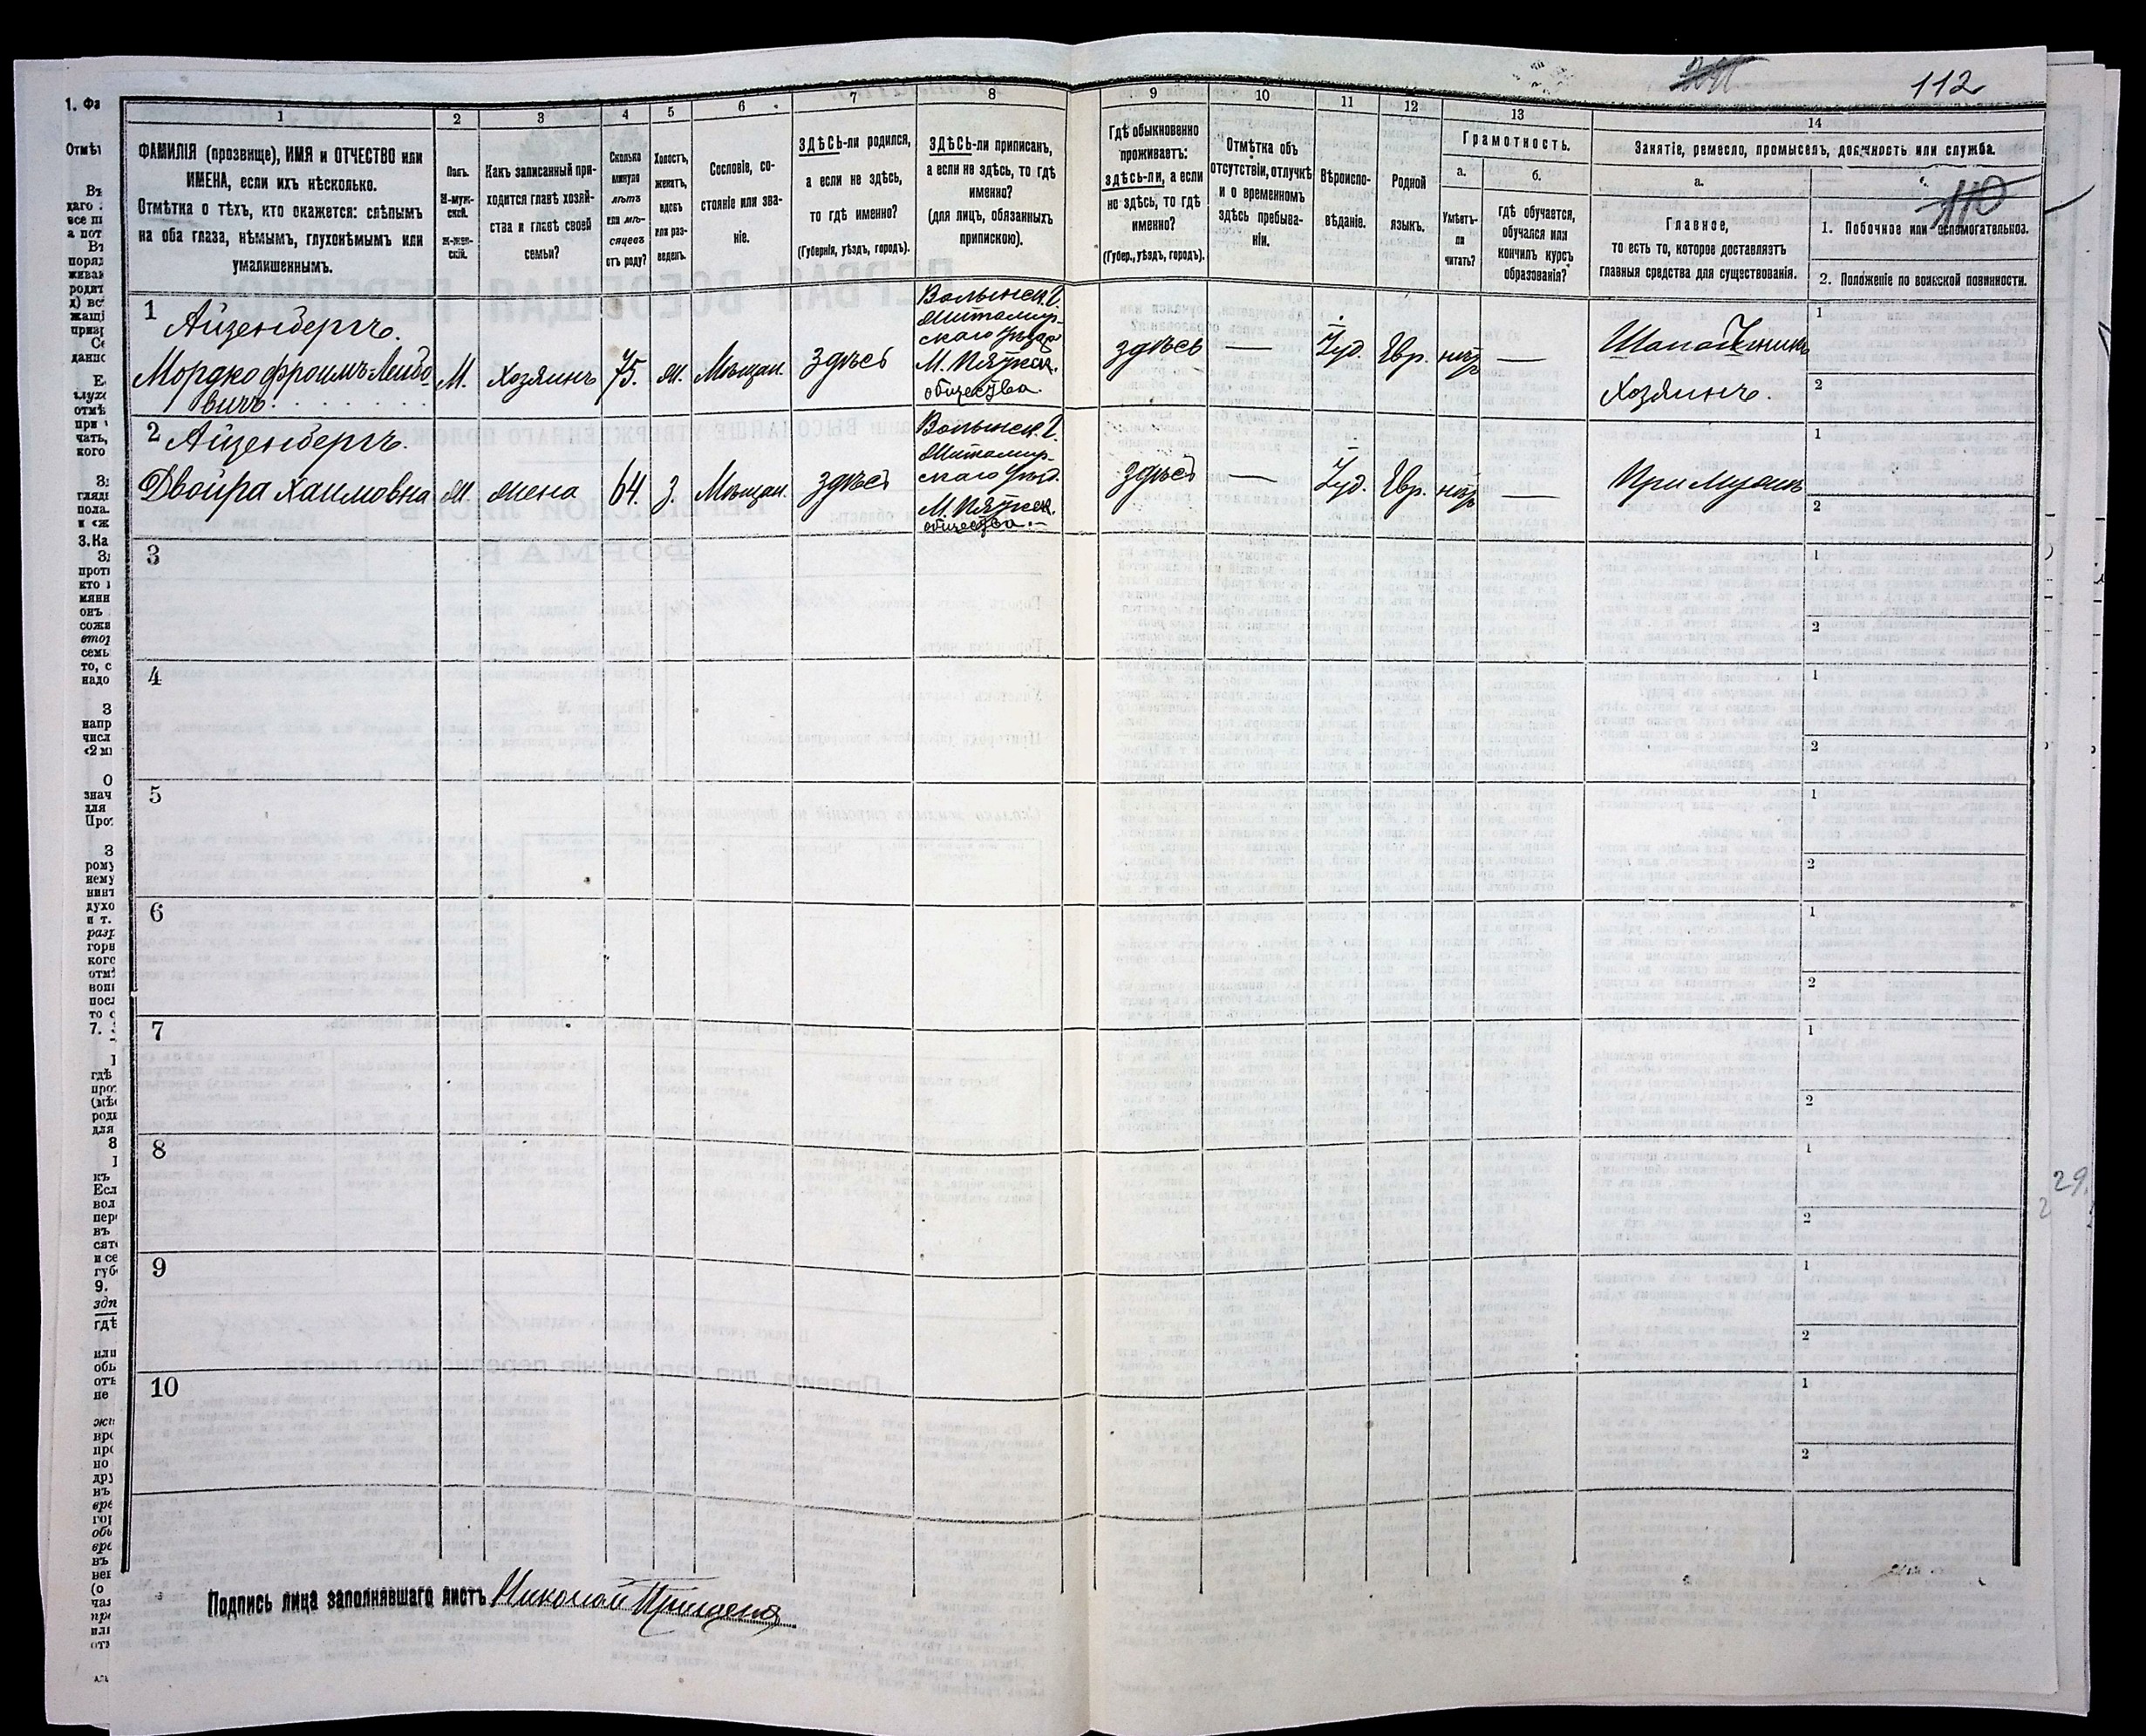 112
110
1 2 3 4 5 6 7 8 9 10 11 12 13 14
ФАМИЛІЯ (прозвище), ИМЯ и ОТЧЕСТВО или
ИМЕНА, если ихъ нѣсколько.
Отмѣтка о тѣхъ, кто окажется: слѣпымъ
на оба глаза, нѣмымъ, глухонѣмымъ или
умалишеннымъ.
Полъ.
М-муж-
ской.
Ж-жен-
скій.
Какъ записанный при-
ходится главѣ хозяй-
ства и главѣ своей
семьи?
Сколько
минуло
лѣтъ
или мѣ-
сяцевъ
отъ роду?
Холостъ,
женатъ,
вдовъ
или раз-
веденъ.
Сословіе, со-
стояніе или зва-
ніе.
ЗДѢСЬ-ли родился,
а если не здѣсь,
то гдѣ именно?
(Губернія, уѣздъ, городъ).
ЗДѢСЬ-ли приписанъ,
а если не здѣсь, то гдѣ
именно?
(для лицъ, обязанныхъ
припискою).
Гдѣ обыкновенно
проживаетъ:
здѣсь-ли, а если
не здѣсь, то гдѣ
именно?
(Губер., уѣздъ, городъ).
Отмѣтка объ
отсутствіи, отлучкѣ
и о временномъ
здѣсь пребыва-
ніи.
Вѣроиспо-
вѣданіе.
Родной
языкъ.
Грамотность.
а.
Умѣетъ-
ли
читать?
б.
гдѣ обучается,
обучался или
кончилъ курсъ
образованія?
Занятіе, ремесло, промыселъ, должность или служба.
а.
Главное,
то есть то, которое доставляетъ
главныя средства для существованія.
1. Побочное или вспомогательное.
2. Положеніе по воинской повинности.
1 Айзенбергъ.
Мордко фроимъ-Лейбо
вичъ.
М.
Хозяинъ
75.
ж.
Мѣщан.
здѣсь
Волынск. г.
Житомир-
скаго уѣзда
М. Пятск.
общества.
здѣсь
—
Іуд.
Евр.
нѣт
—
Шапочникъ
Хозяинъ.
1
2
2 Айзенбергъ.
Двойра Хаимовна
Ж.
жена
64.
З.
Мѣщан.
здѣсь
Волынск. г.
Житомир-
скаго уѣзд.
М. Пятск.
общества.
здѣсь
—
Іуд.
Евр.
нѣт
—
При мужѣ
1
2
3
1
2
4
1
2
5
1
2
6
1
2
7
1
2
8
1
2
9
1
2
10
1
2
29
Подпись лица заполнявшаго листъ Николай